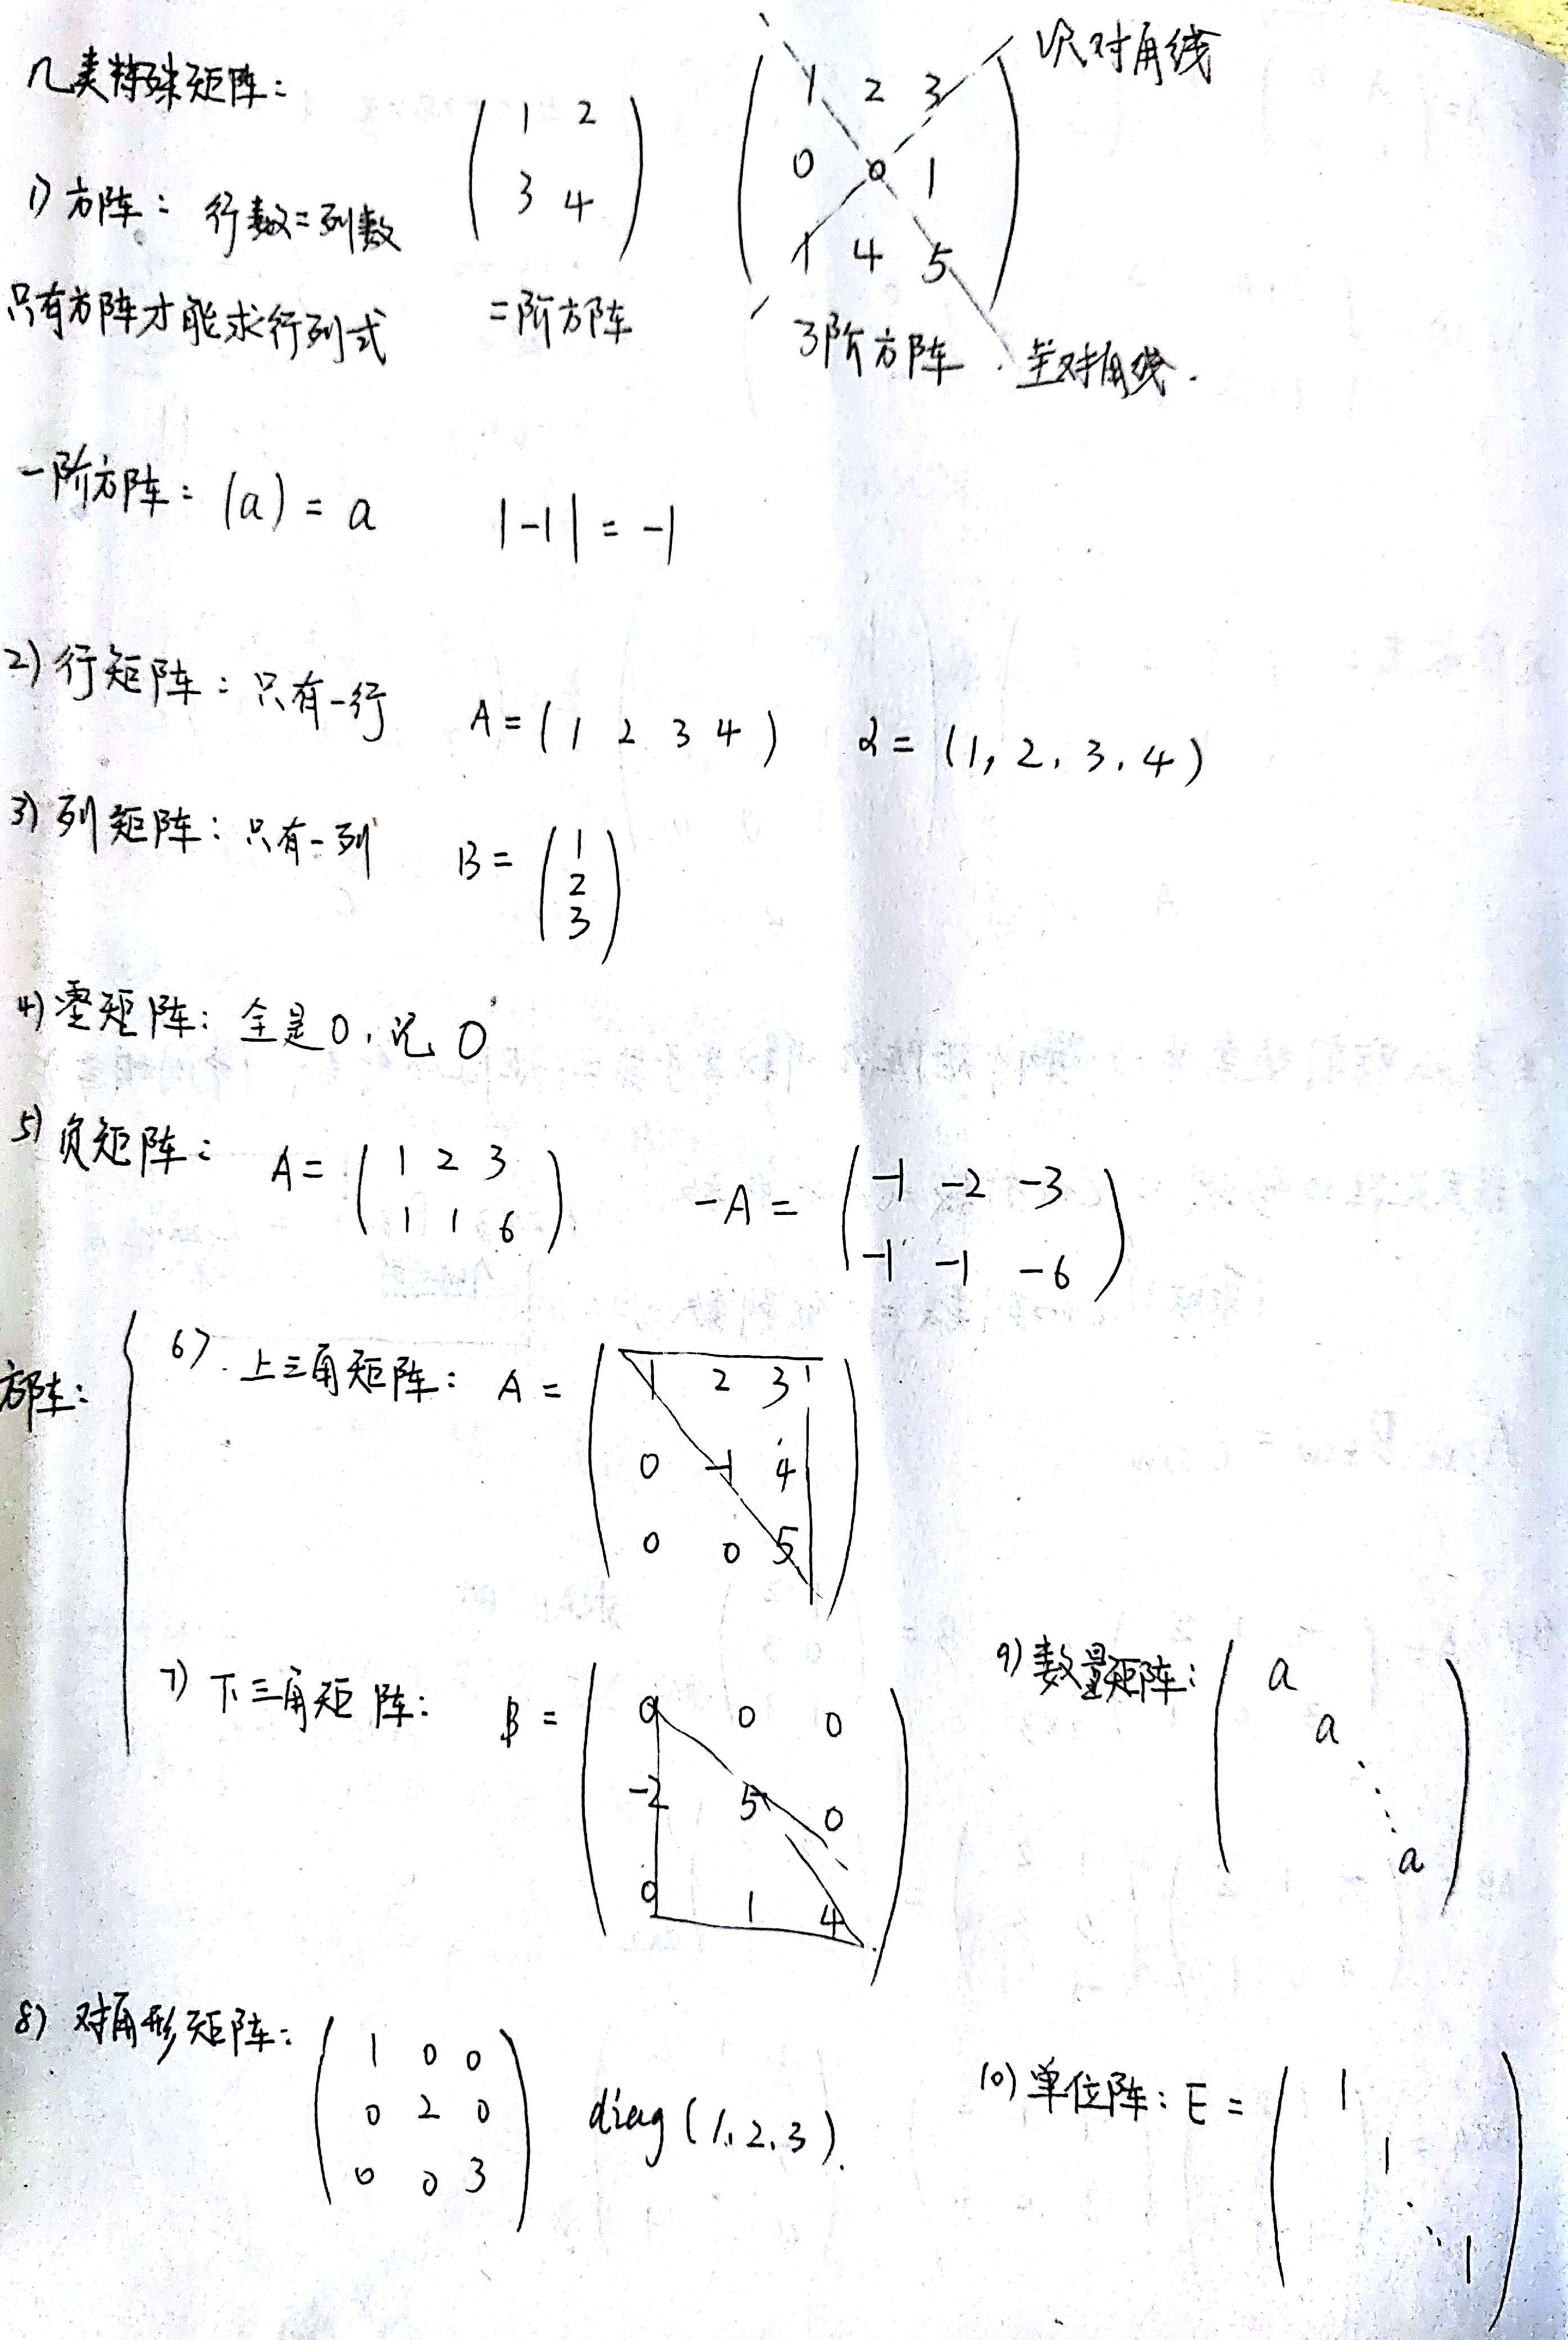 几类特殊矩阵:
次对角线
1) 方阵: 行数=列数
( 1 2
3 4 )
( 1 2 3
0 0 1
1 4 5 )
只有方阵才能求行列式
二阶方阵
3阶方阵
主对角线.
一阶方阵: (a) = a |-1| = -1
2) 行矩阵: 只有一行 A = ( 1 2 3 4 ) α = (1, 2, 3, 4)
3) 列矩阵: 只有一列 B = ( 1
2
3 )
4) 零矩阵: 全是0, 记 O
5) 负矩阵: A = ( 1 2 3
1 1 6 )
-A = ( -1 -2 -3
-1 -1 -6 )
方阵:
6) 上三角矩阵: A = ( 1 2 3
0 -1 4
0 0 5 )
7) 下三角矩阵: B = ( 0 0 0
-2 5 0
0 1 4 )
9) 数量矩阵: ( a
a
⋱
a )
8) 对角形矩阵: ( 1 0 0
0 2 0
0 0 3 )
diag (1, 2, 3).
10) 单位阵: E = ( 1
1
⋱
1 )